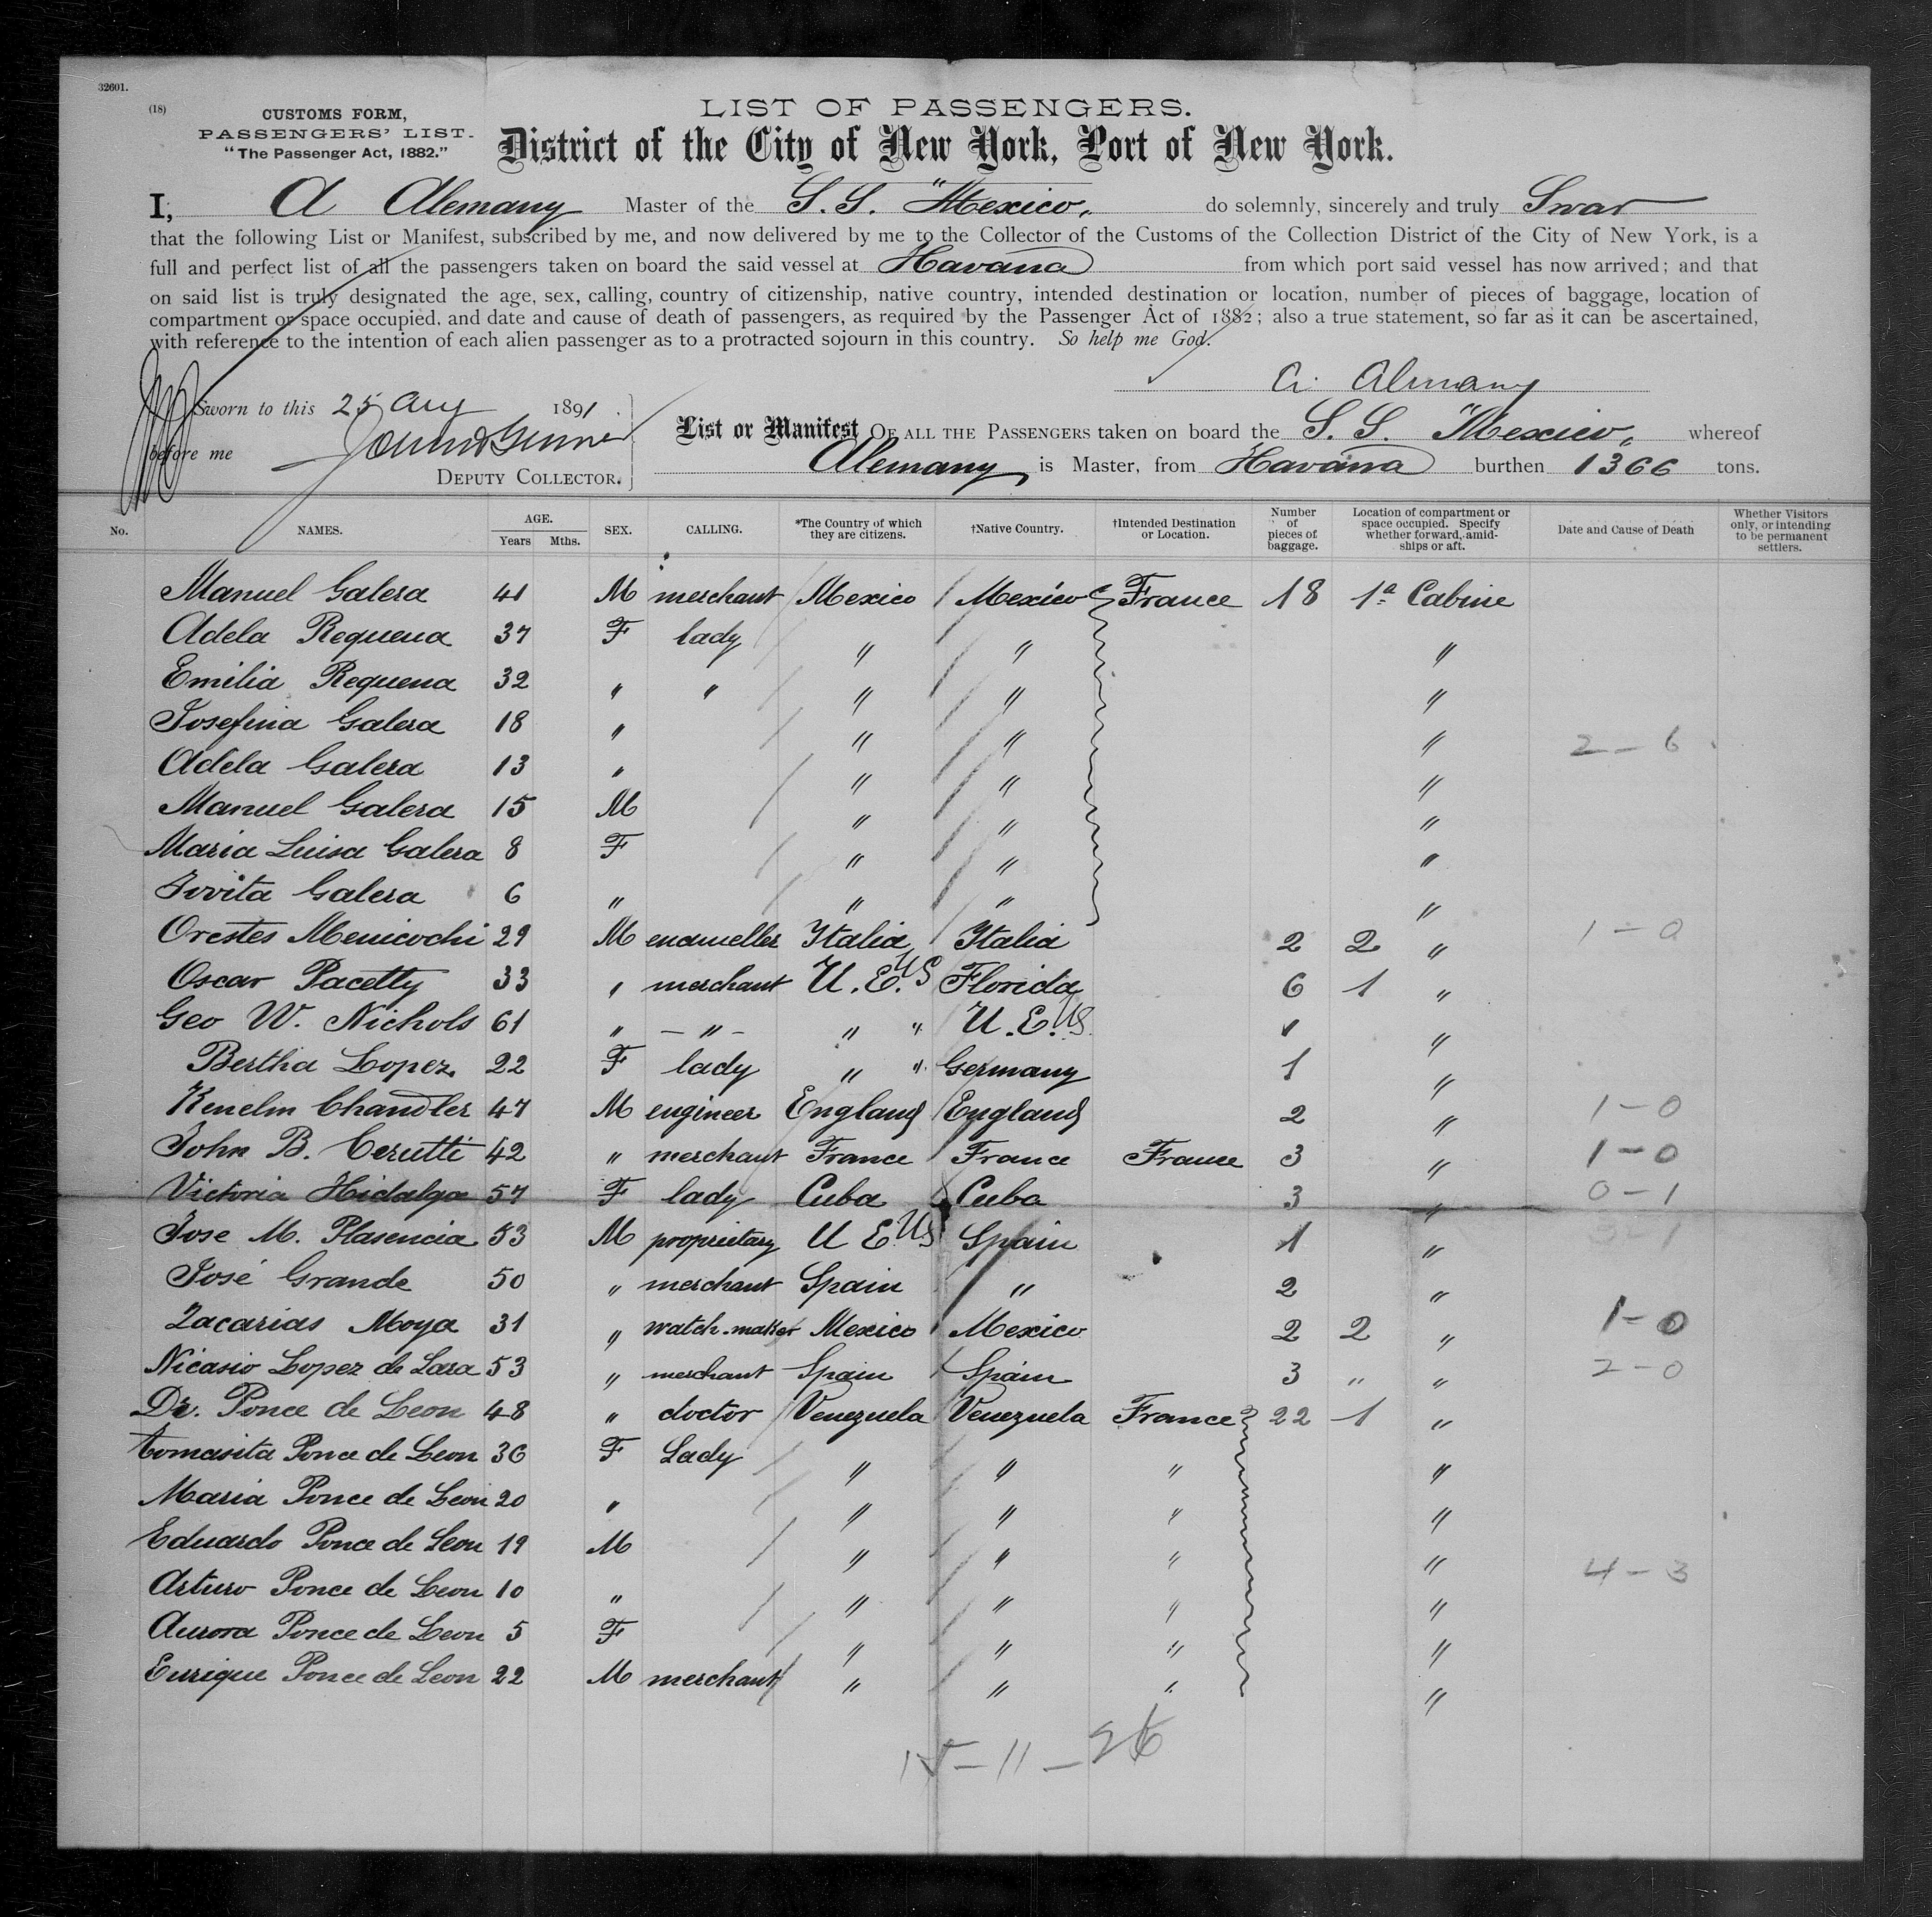 32601.
(18)
CUSTOMS FORM,
PASSENGERS' LIST.
"The Passenger Act, 1882."
LIST OF PASSENGERS.
District of the City of New York, Port of New York.
I, A Alemany Master of the S.S. "Mexico" do solemnly, sincerely and truly Swear
that the following List or Manifest, subscribed by me, and now delivered by me to the Collector of the Customs of the Collection District of the City of New York, is a
full and perfect list of all the passengers taken on board the said vessel at Havana from which port said vessel has now arrived; and that
on said list is truly designated the age, sex, calling, country of citizenship, native country, intended destination or location, number of pieces of baggage, location of
compartment or space occupied, and date and cause of death of passengers, as required by the Passenger Act of 1882; also a true statement, so far as it can be ascertained,
with reference to the intention of each alien passenger as to a protracted sojourn in this country. So help me God.
A. Alemany
Sworn to this 25 Aug 1891
before me
DEPUTY COLLECTOR.
List or Manifest OF ALL THE PASSENGERS taken on board the S.S. "Mexico" whereof
Alemany is Master, from Havana burthen 1366 tons.
No. NAMES. AGE. Years Mths. SEX. CALLING. *The Country of which they are citizens. †Native Country. †Intended Destination or Location. Number of pieces of baggage. Location of compartment or space occupied. Specify whether forward, amidships or aft. Date and Cause of Death Whether Visitors only, or intending to be permanent settlers.
Manuel Galera 41 M merchant Mexico Mexico France 18 1ª Cabine
Adela Requena 37 F lady " " "
Emilia Requena 32 " " " " "
Josefina Galera 18 " " " "
Adela Galera 13 " " " " 2-6
Manuel Galera 15 M " " "
Maria Luisa Galera 8 F " " "
Jovita Galera 6 " " " "
Orestes Menicochi 29 M enameller Italia Italia 2 2 " 1-0
Oscar Pacetty 33 " merchant U.E. US Florida 6 1 "
Geo W. Nichols 61 " - " - " " U.E. US 1 "
Bertha Lopez 22 F lady " " Germany 1 "
Kenelm Chandler 47 M engineer England England 2 " 1-0
John B. Cerutti 42 " merchant France France France 3 " 1-0
Victoria Hidalgo 57 F lady Cuba Cuba 3 " 0-1
Jose M. Plasencia 53 M proprietary U E. US Spain 1 " 3-1
José Grande 50 " merchant Spain " 2 "
Zacarias Moya 31 " watch-maker Mexico Mexico 2 2 " 1-0
Nicasio Lopez de Lara 53 " merchant Spain Spain 3 " " 2-0
Dr. Ponce de Leon 48 " doctor Venezuela Venezuela France 22 1 "
Tomasita Ponce de Leon 36 F Lady " " " "
Maria Ponce de Leon 20 " " " " "
Eduardo Ponce de Leon 19 M " " " "
Arturo Ponce de Leon 10 " " " " " 4-3
Aurora Ponce de Leon 5 F " " " "
Enrique Ponce de Leon 22 M merchant " " " "
15-11-26